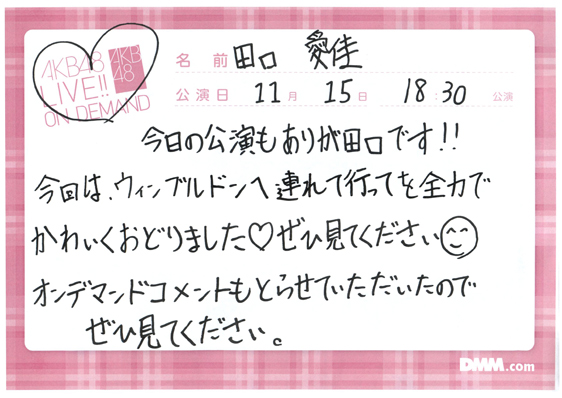 AKB48
LIVE!!
ON DEMAND
AKB
48
名前 田口 愛佳
公演日 11月 15日 18:30 公演
今日の公演もありが田口です!!
今回は、ウィンブルドンへ連れて行ってを全力で
かわいくおどりました♡ぜひ見てください
オンデマンドコメントもとらせていただいたので
ぜひ見てください。
DMM.com